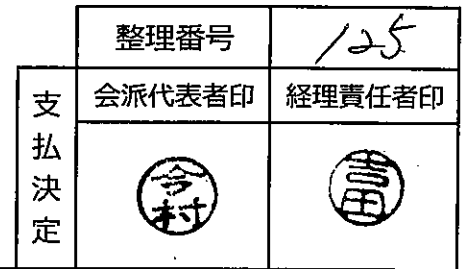 整理番号 125
支払決定
会派代表者印 経理責任者印
今村 吉田